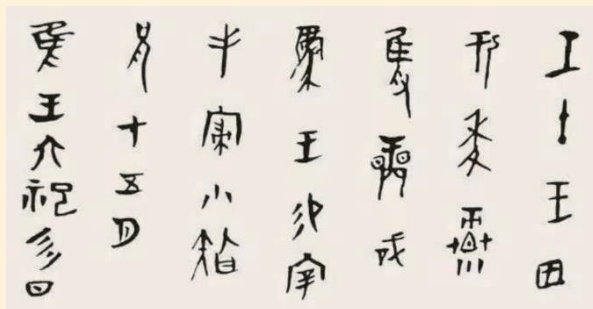 壬午王田
于麥彔
隻商戠
兕王易宰
丰寢小
兄才五月
隹王六祀肜日